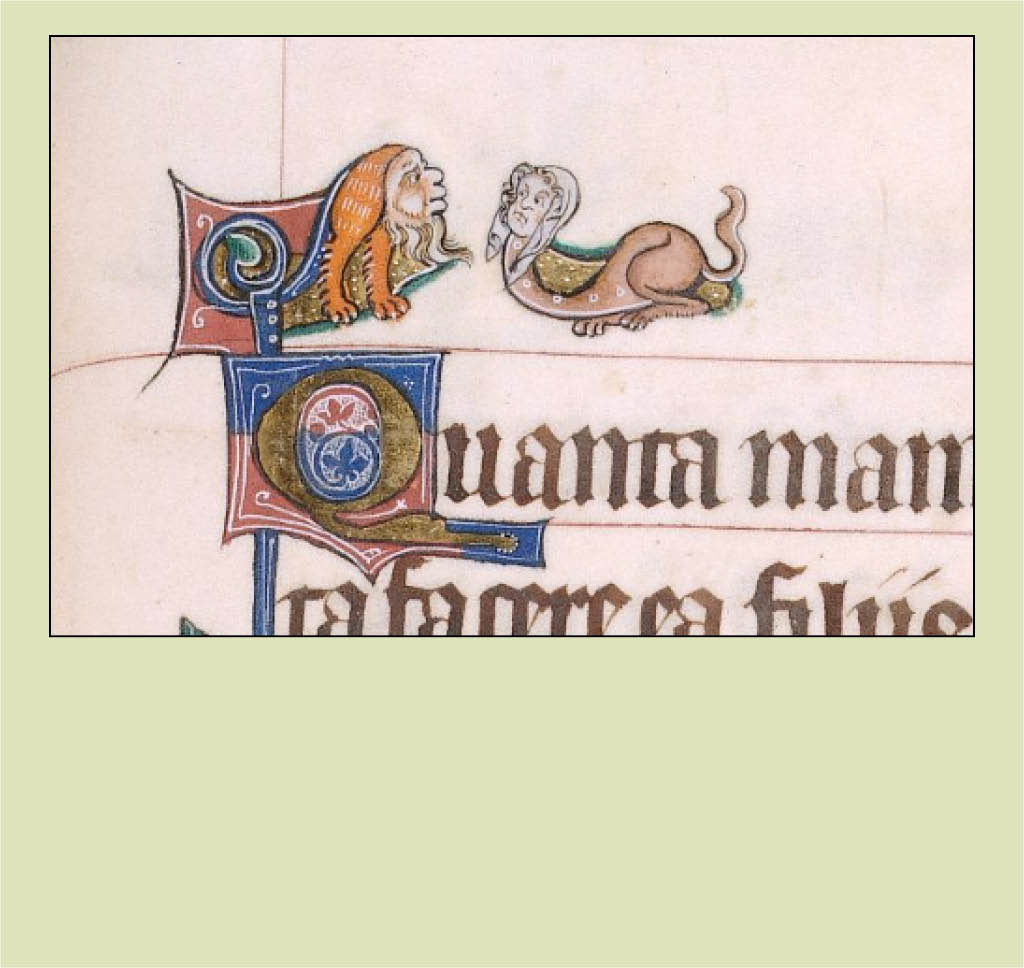 Quanta man
ta facere ea filijs